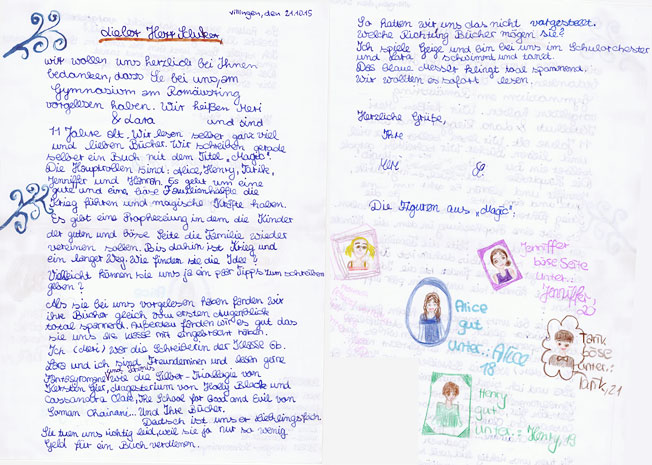 Villingen, den 21.10.15
Lieber Herr
wir wollen uns herzlich bei Ihnen
bedanken, dass Sie bei uns, am
Gymnasium am Romäusring
vorgelesen haben. Wir heißen Meri
& Lara und sind
11 Jahre alt. Wir lesen selber ganz viel
und lieben Bücher. Wir schreiben gerade
selber ein Buch mit dem Titel „Magis".
Die Hauptrollen sind: Alice, Henry, Tarik,
Jenniffer und Es geht um eine
gute und eine böse Familienhälfte die
Krieg führen und magische Kräfte haben.
Es gibt eine Prophezeiung in dem die Kinder
der guten und böse Seite die Familie wieder
vereinen sollen. Bis dahin ist Krieg und
ein langer Weg. Wie finden sie die Idee?
Vielleicht können sie uns ja ein paar Tipps zum schreiben
geben?
Als sie bei uns vorgelesen haben fanden wir
ihre Bücher gleich vom ersten Augenblick
total spannend. Außerdem fanden wir es gut das
sie uns die Messer mit eingebracht haben.
Ich (Meri) war die Schreiberin der Klasse 6b.
Lara und ich sind Freundinnen und lesen gerne
Fantasyromane wie die Silber-Triallogie von
Kerstin Gier, Magesterium von Holly Black und
Cassandra Clare, The School for Good and Evil von
Soman Chainani... Und Ihre Bücher.
Deutsch ist unser Lieblingsfach.
Sie tuen uns richtig leid, weil sie ja nur so wenig
Geld für ein Buch verdienen.
So hatten wir uns das nicht vorgestellt.
Welche Richtung Bücher mögen sie?
Ich spiele Geige und bin bei uns im Schulorchester
und Lara schwimmt und tanzt.
Das blaue Messer klingt total spannend.
Wir wollten es sofort lesen.
Herzliche Grüße,
Ihre
Meri
Die Figuren aus „Magis":
Jenniffer
böse Seite
unter.:
Jenniffer,
20
Alice
gut
unter.: Alice
18
Tarik
böse
unter.:
Tarik, 21
Henry
gut
unter.: Henry, 19